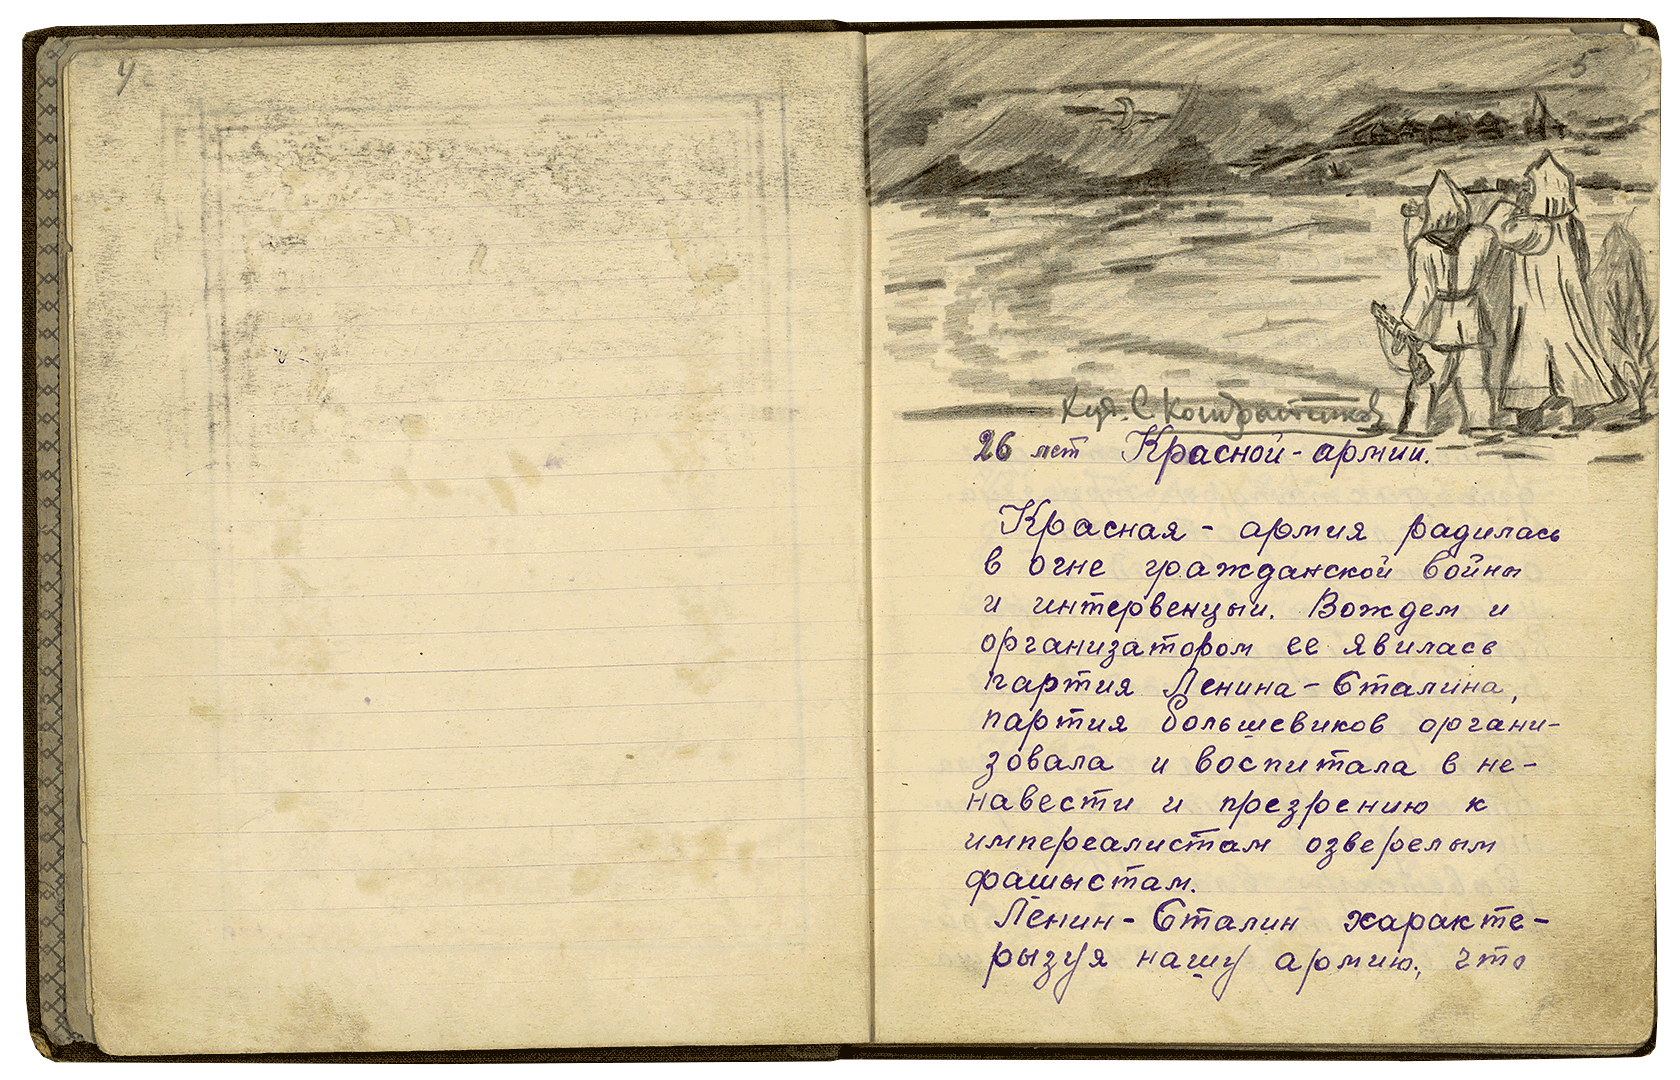 4
5
Худ. С. Кондратиков
26 лет Красной-армии.
Красная - армия радилась
в огне гражданской войны
и интервенцыи. Вождем и
организатором ее явилась
партия Ленина - Сталина,
партия большевиков органи-
зовала и воспитала в не-
навести и презрению к
импереалистам озверелым
фашыстам.
Ленин - Сталин характе-
рызуя нашу армию, что